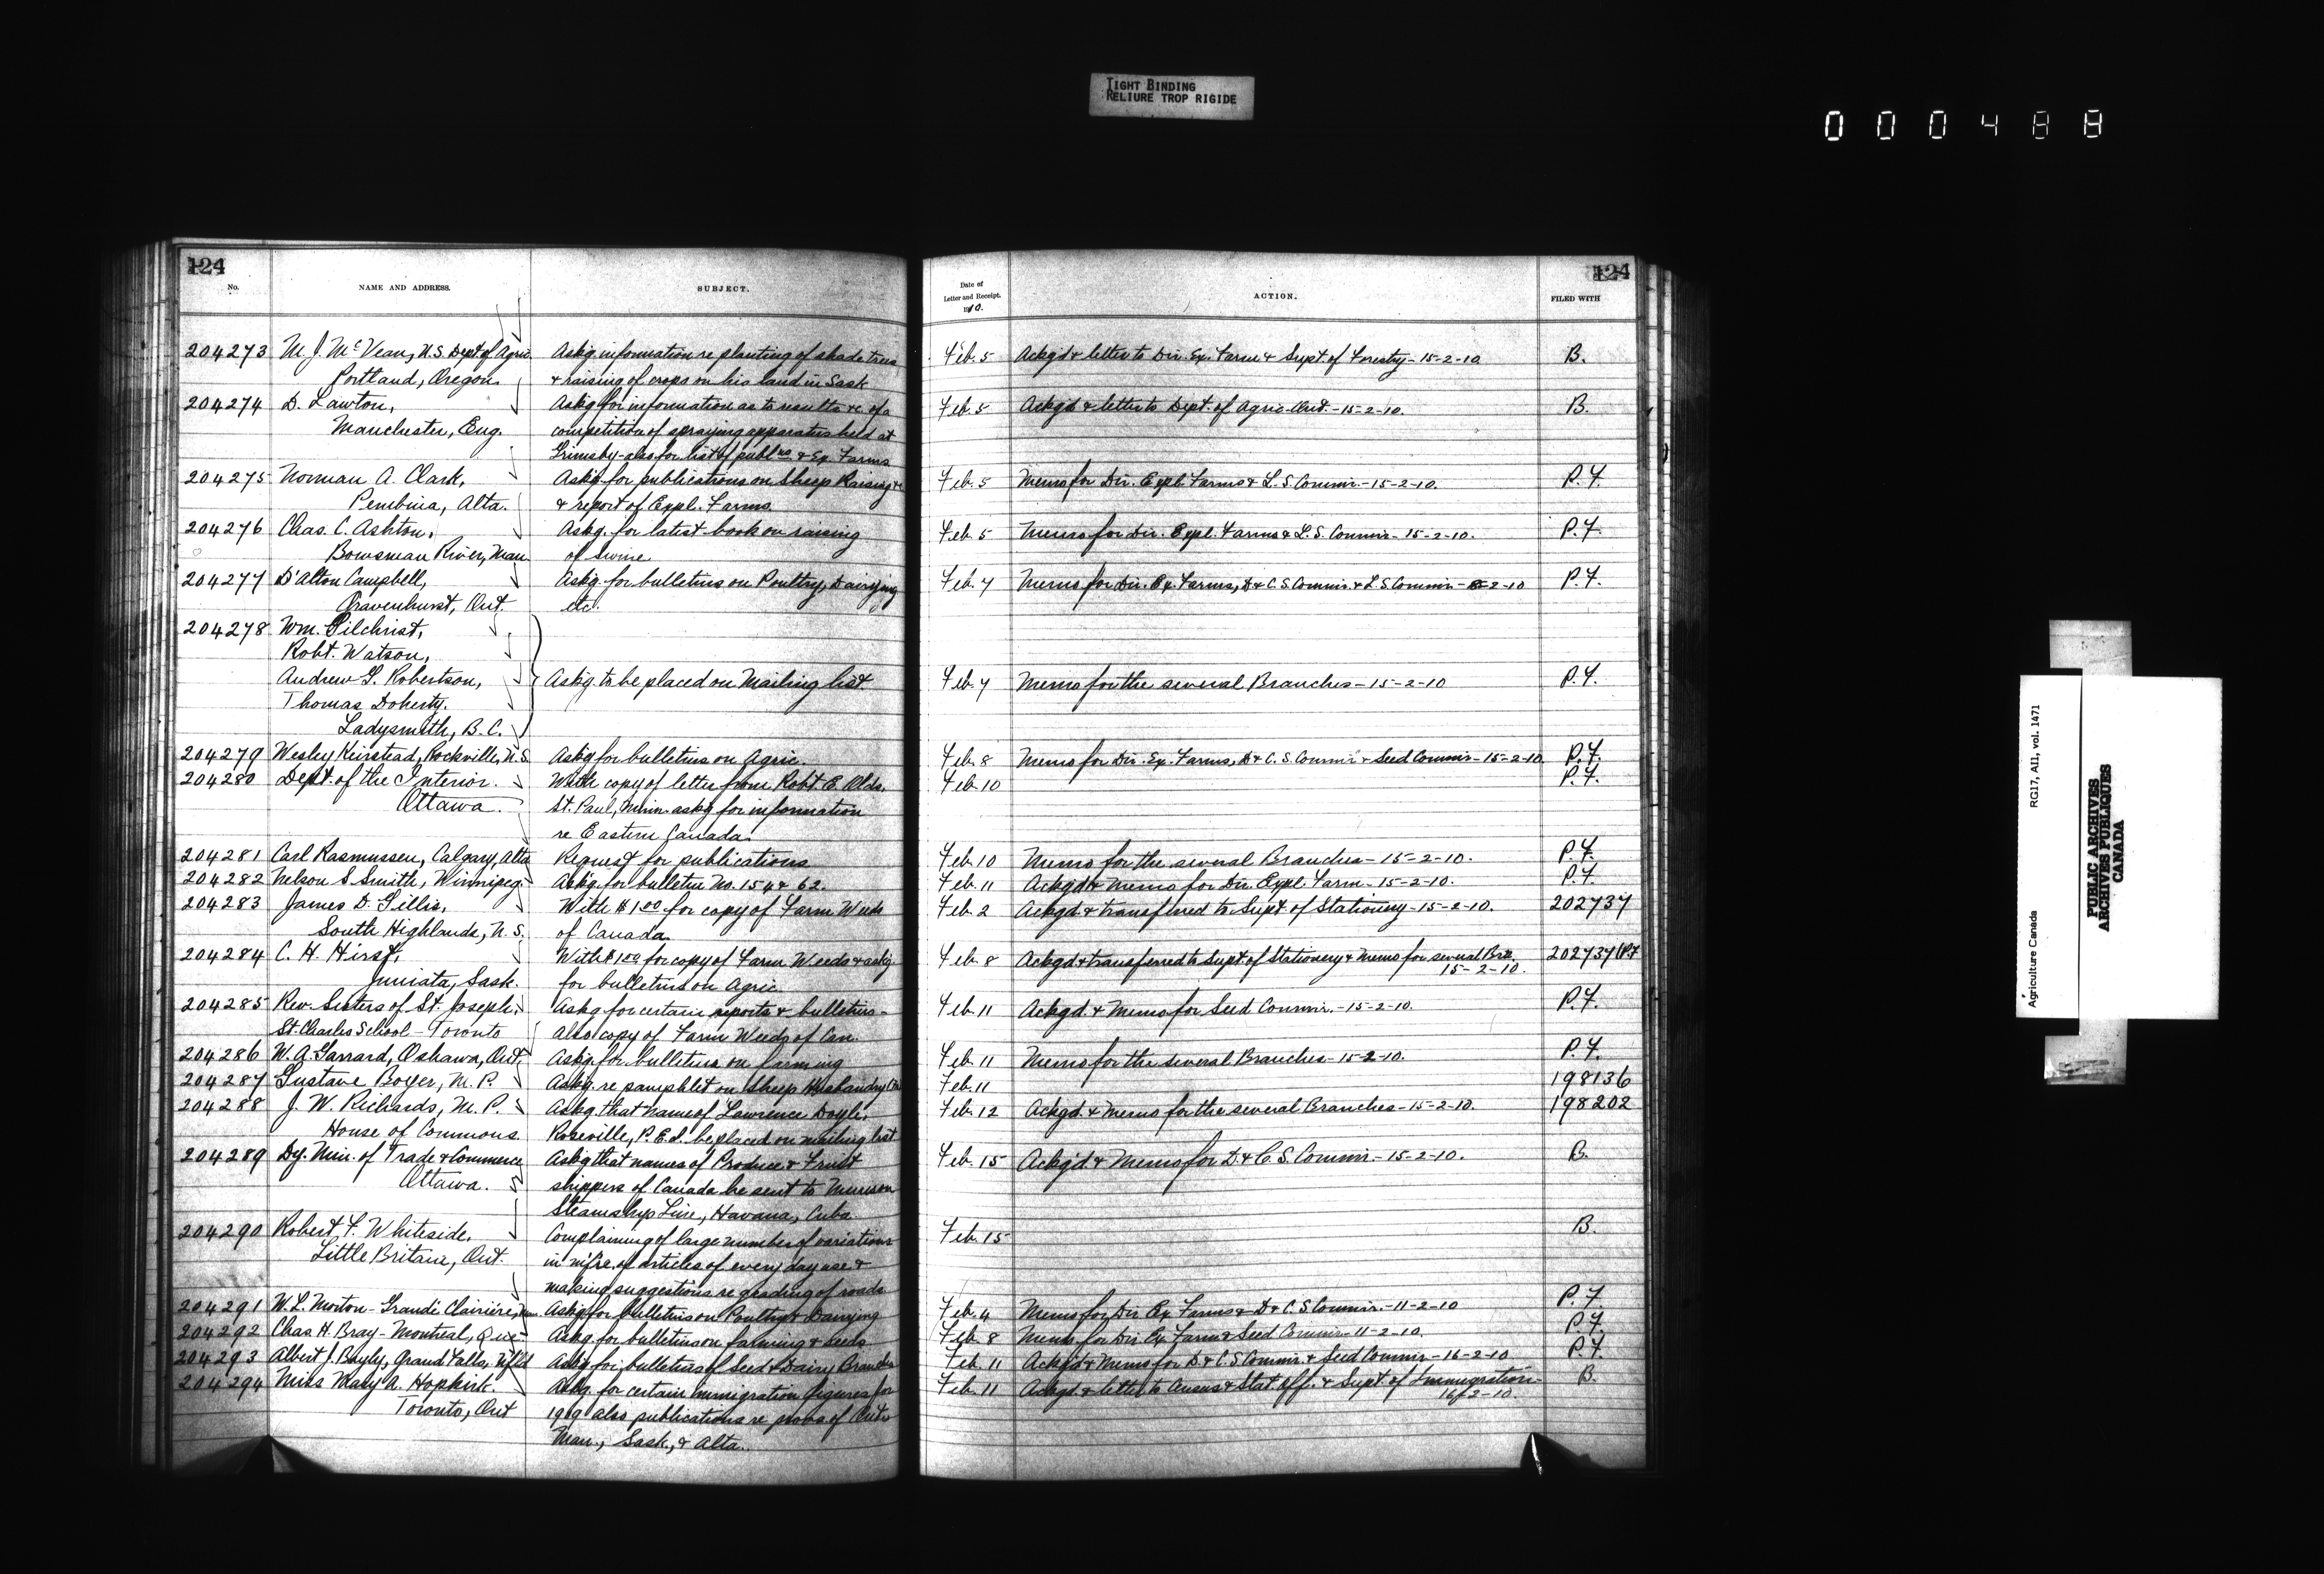 TIGHT BINDING
RELIURE TROP RIGIDE
000488
124
No.
NAME AND ADDRESS.
SUBJECT.
204273 M. J. McVean, U.S. Dept. of Agric. Askg. information re planting of shade trees
Portland, Oregon. & raising of crops on his land in Sask
204274 D. Lawton, Askg for information as to results &c. of a
Manchester, Eng. competition of spraying apparatus held at
Grimsby - also for list of publns & Ex. Farms
204275 Norman A. Clark, Askg for publications on Sheep Raising &c
Pembina, Alta. & report of Expl. Farms.
204276 Chas. C. Ashton, Askg. for latest book on raising
Bowsman River, Man of Swine.
204277 D'Alton Campbell, Askg. for bulletins on Poultry, Dairying
Gravenhurst, Ont. etc.
204278 Wm. Gilchrist,
Robt. Watson,
Andrew G. Robertson, Askg to be placed on Mailing list
Thomas Doherty.
Ladysmith, B.C.
204279 Wesley Keirstead, Rockville, N.S. Askg for bulletins on Agric.
204280 Dept. of the Interior. With copy of letter from Robt. E. Olds,
Ottawa. St. Paul, Minn. askg for information
re Eastern Canada.
204281 Carl Rasmussen, Calgary, Alta Request for publications
204282 Nelson S Smith, Winnipeg. Askg. for bulletin No. 154 & 62.
204283 James D. Gillis, With $1.00 for copy of Farm Weeds
South Highlands, N.S. of Canada.
204284 C. H. Hirst, With $1.00 for copy of Farm Weeds & askg.
Juniata, Sask. for bulletins on Agric.
204285 Rev. Sisters of St. Joseph, Askg for certain reports & bulletins -
St. Charles School - Toronto also copy of Farm Weeds of Can.
204286 W. A. Garrard, Oshawa, Ont Askg. for bulletins on farming
204287 Gustave Boyer, M.P. Askg. re pamphlet on Sheep Husbandry
204288 J. W. Richards, M.P. Askg. that name of Lawrence Doyle,
House of Commons. Roseville, P.E.I. be placed on mailing list
204289 Dy. Min. of Trade & Commerce Askg that names of Produce & Fruit
Ottawa. shippers of Canada be sent to Munson
Steamship Line, Havana, Cuba.
204290 Robert F. Whiteside, Complaining of large number of variations
Little Britain, Ont. in m'f're. of articles of every day use &
making suggestions re grading of roads
204291 W. L. Morton - Grande Clairière, Man. Askg for bulletins on Poultry & Dairying
204292 Chas H. Bray - Montreal, Que. Askg. for bulletins on farming & seeds
204293 Albert J. Bayly, Grand Falls, Nfld Askg for bulletins of Seed & Dairy Branches
204294 Miss Mary A. Hopkirk. Askg. for certain immigration figures for
Toronto, Ont 1909 also publications re provs of Ont.
Man., Sask., & Alta.
124
Date of
Letter and Receipt.
1910.
ACTION.
FILED WITH
Feb. 5 Ackg'd & letter to Dir. Ex. Farm & Supt. of Forestry - 15-2-10 B.
Feb. 5 Ackg'd & letter to Dept. of Agric. Ont. - 15-2-10. B.
Feb. 5 Memo for Dir. Expl. Farms & L.S. Commr. - 15-2-10. P.F.
Feb. 5 Memo for Dir. Expl. Farms & L.S. Commr. - 15-2-10. P.F.
Feb. 7 Memo for Dir. Ex. Farms, D. & C.S. Commr. & L.S. Commr. - 15-2-10 P.F.
Feb. 7 Memo for the several Branches - 15-2-10 P.F.
Feb. 8 Memo for Dir. Ex. Farms, D. & C.S. Commr. & Seed Commr. - 15-2-10. P.F.
Feb. 10 P.F.
Feb. 10 Memo for the several Branches - 15-2-10. P.F.
Feb. 11 Ackgd. & Memo for Dir. Expl. Farm - 15-2-10. P.F.
Feb. 2 Ackgd. & transferred to Supt. of Stationery - 15-2-10. 202737
Feb. 8 Ackgd. & transferred to Supt. of Stationery & Memo for several Brs. 202737 & P.F
15-2-10.
Feb. 11 Ackgd. & Memo for Seed Commr. - 15-2-10. P.F.
Feb. 11 Memo for the several Branches - 15-2-10. P.F.
Feb. 11 198136
Feb. 12 Ackgd. & Memo for the several Branches - 15-2-10. 198202
Feb. 15 Ackg'd. & Memo for D. & C.S. Commr. - 15-2-10. B.
Feb. 15 B.
Feb. 4 Memo for Dir. Ex. Farms & D. & C.S. Commr. - 11-2-10 P.F.
Feb. 8 Memo. for Dir. Ex. Farm & Seed Commr. - 11-2-10. P.F.
Feb. 11 Ackg'd & Memo for D. & C.S. Commr. & Seed Commr - 16-2-10 P.F.
Feb. 11 Ackgd. & letter to Census & Stat. Off. & Supt. of Immigration - B.
16-2-10.
Agriculture Canada RG17, AII, vol. 1471
PUBLIC ARCHIVES
ARCHIVES PUBLIQUES
CANADA